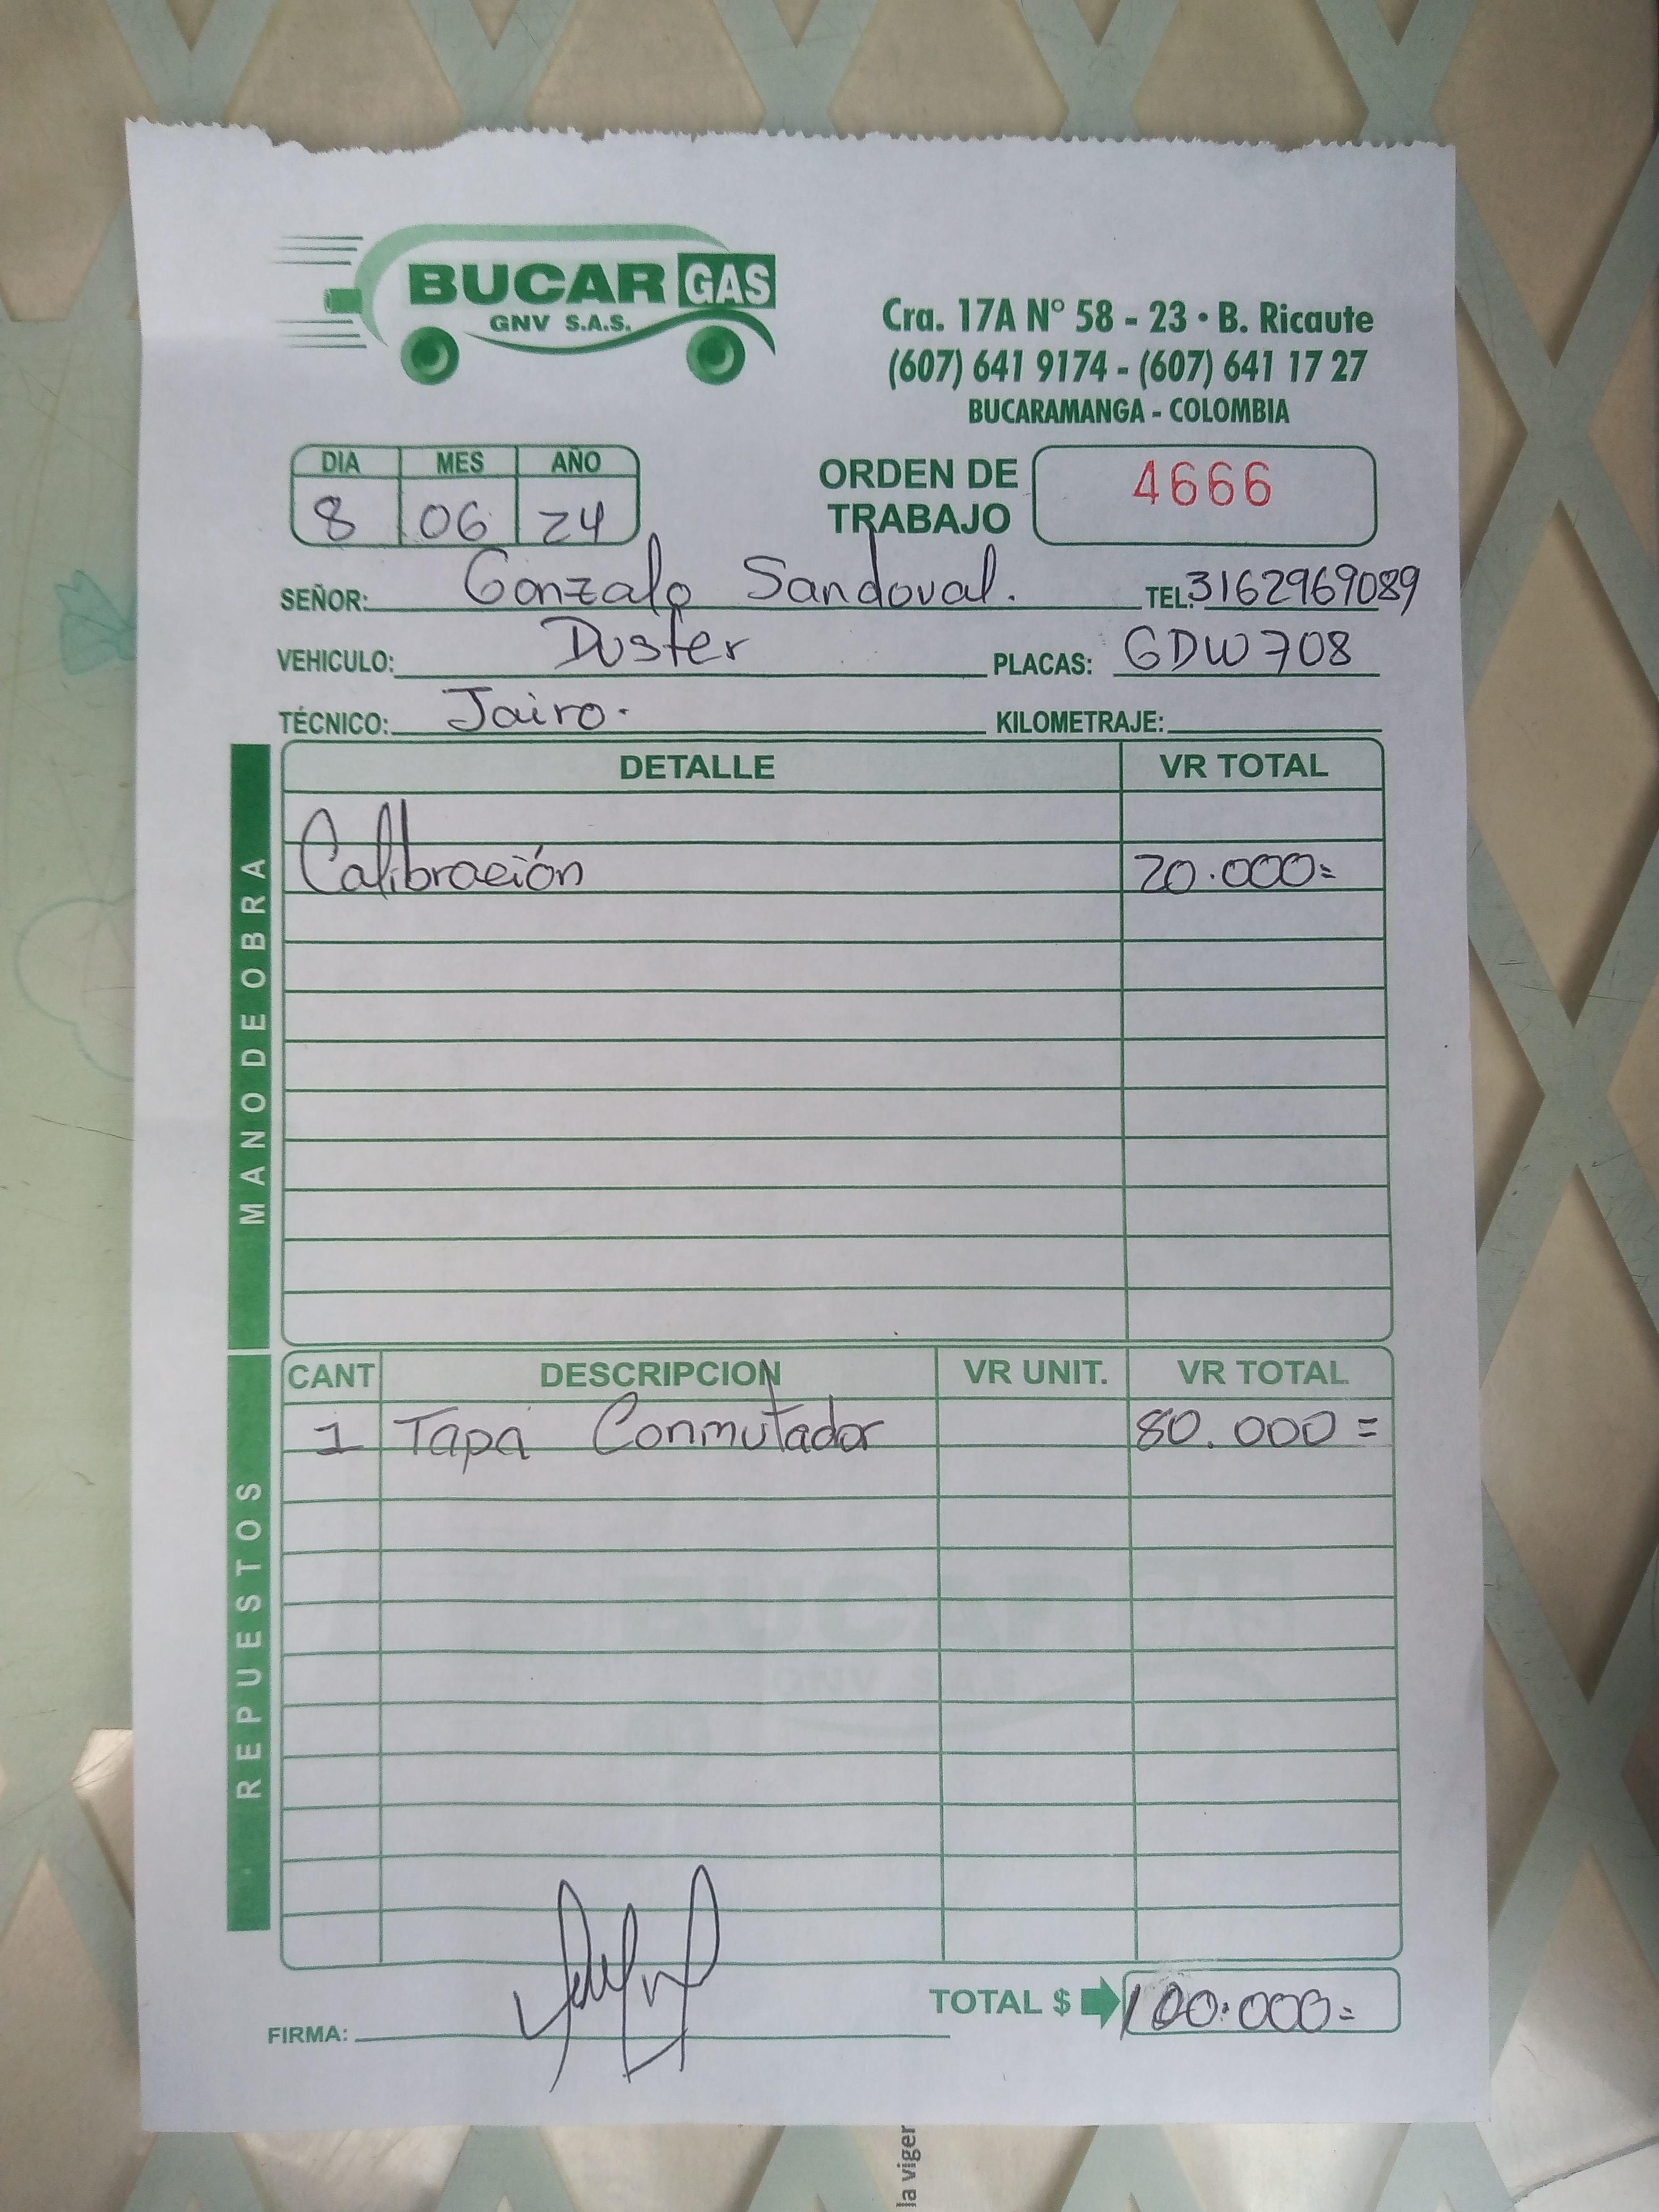 BUCAR GAS
GNV S.A.S.
Cra. 17A N° 58 - 23 • B. Ricaute
(607) 641 9174 - (607) 641 17 27
BUCARAMANGA - COLOMBIA
DIA MES AÑO
8 06 24
ORDEN DE TRABAJO 4666
SEÑOR: Gonzalo Sandoval. TEL: 3162969089
VEHICULO: Duster PLACAS: GDW708
TÉCNICO: Jairo. KILOMETRAJE:
MANO DE OBRA
DETALLE VR TOTAL
Calibración 20.000=
REPUESTOS
CANT DESCRIPCION VR UNIT. VR TOTAL
1 Tapa Conmutador 80.000=
TOTAL $ 100.000=
FIRMA:
la viger